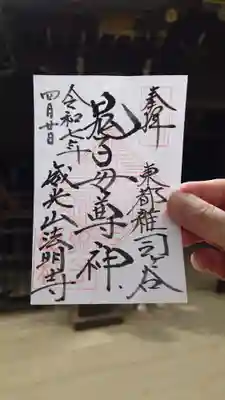 奉拝
東都雑司ヶ谷
鬼子母尊神
威光山法明寺
令和七年
四月廿日